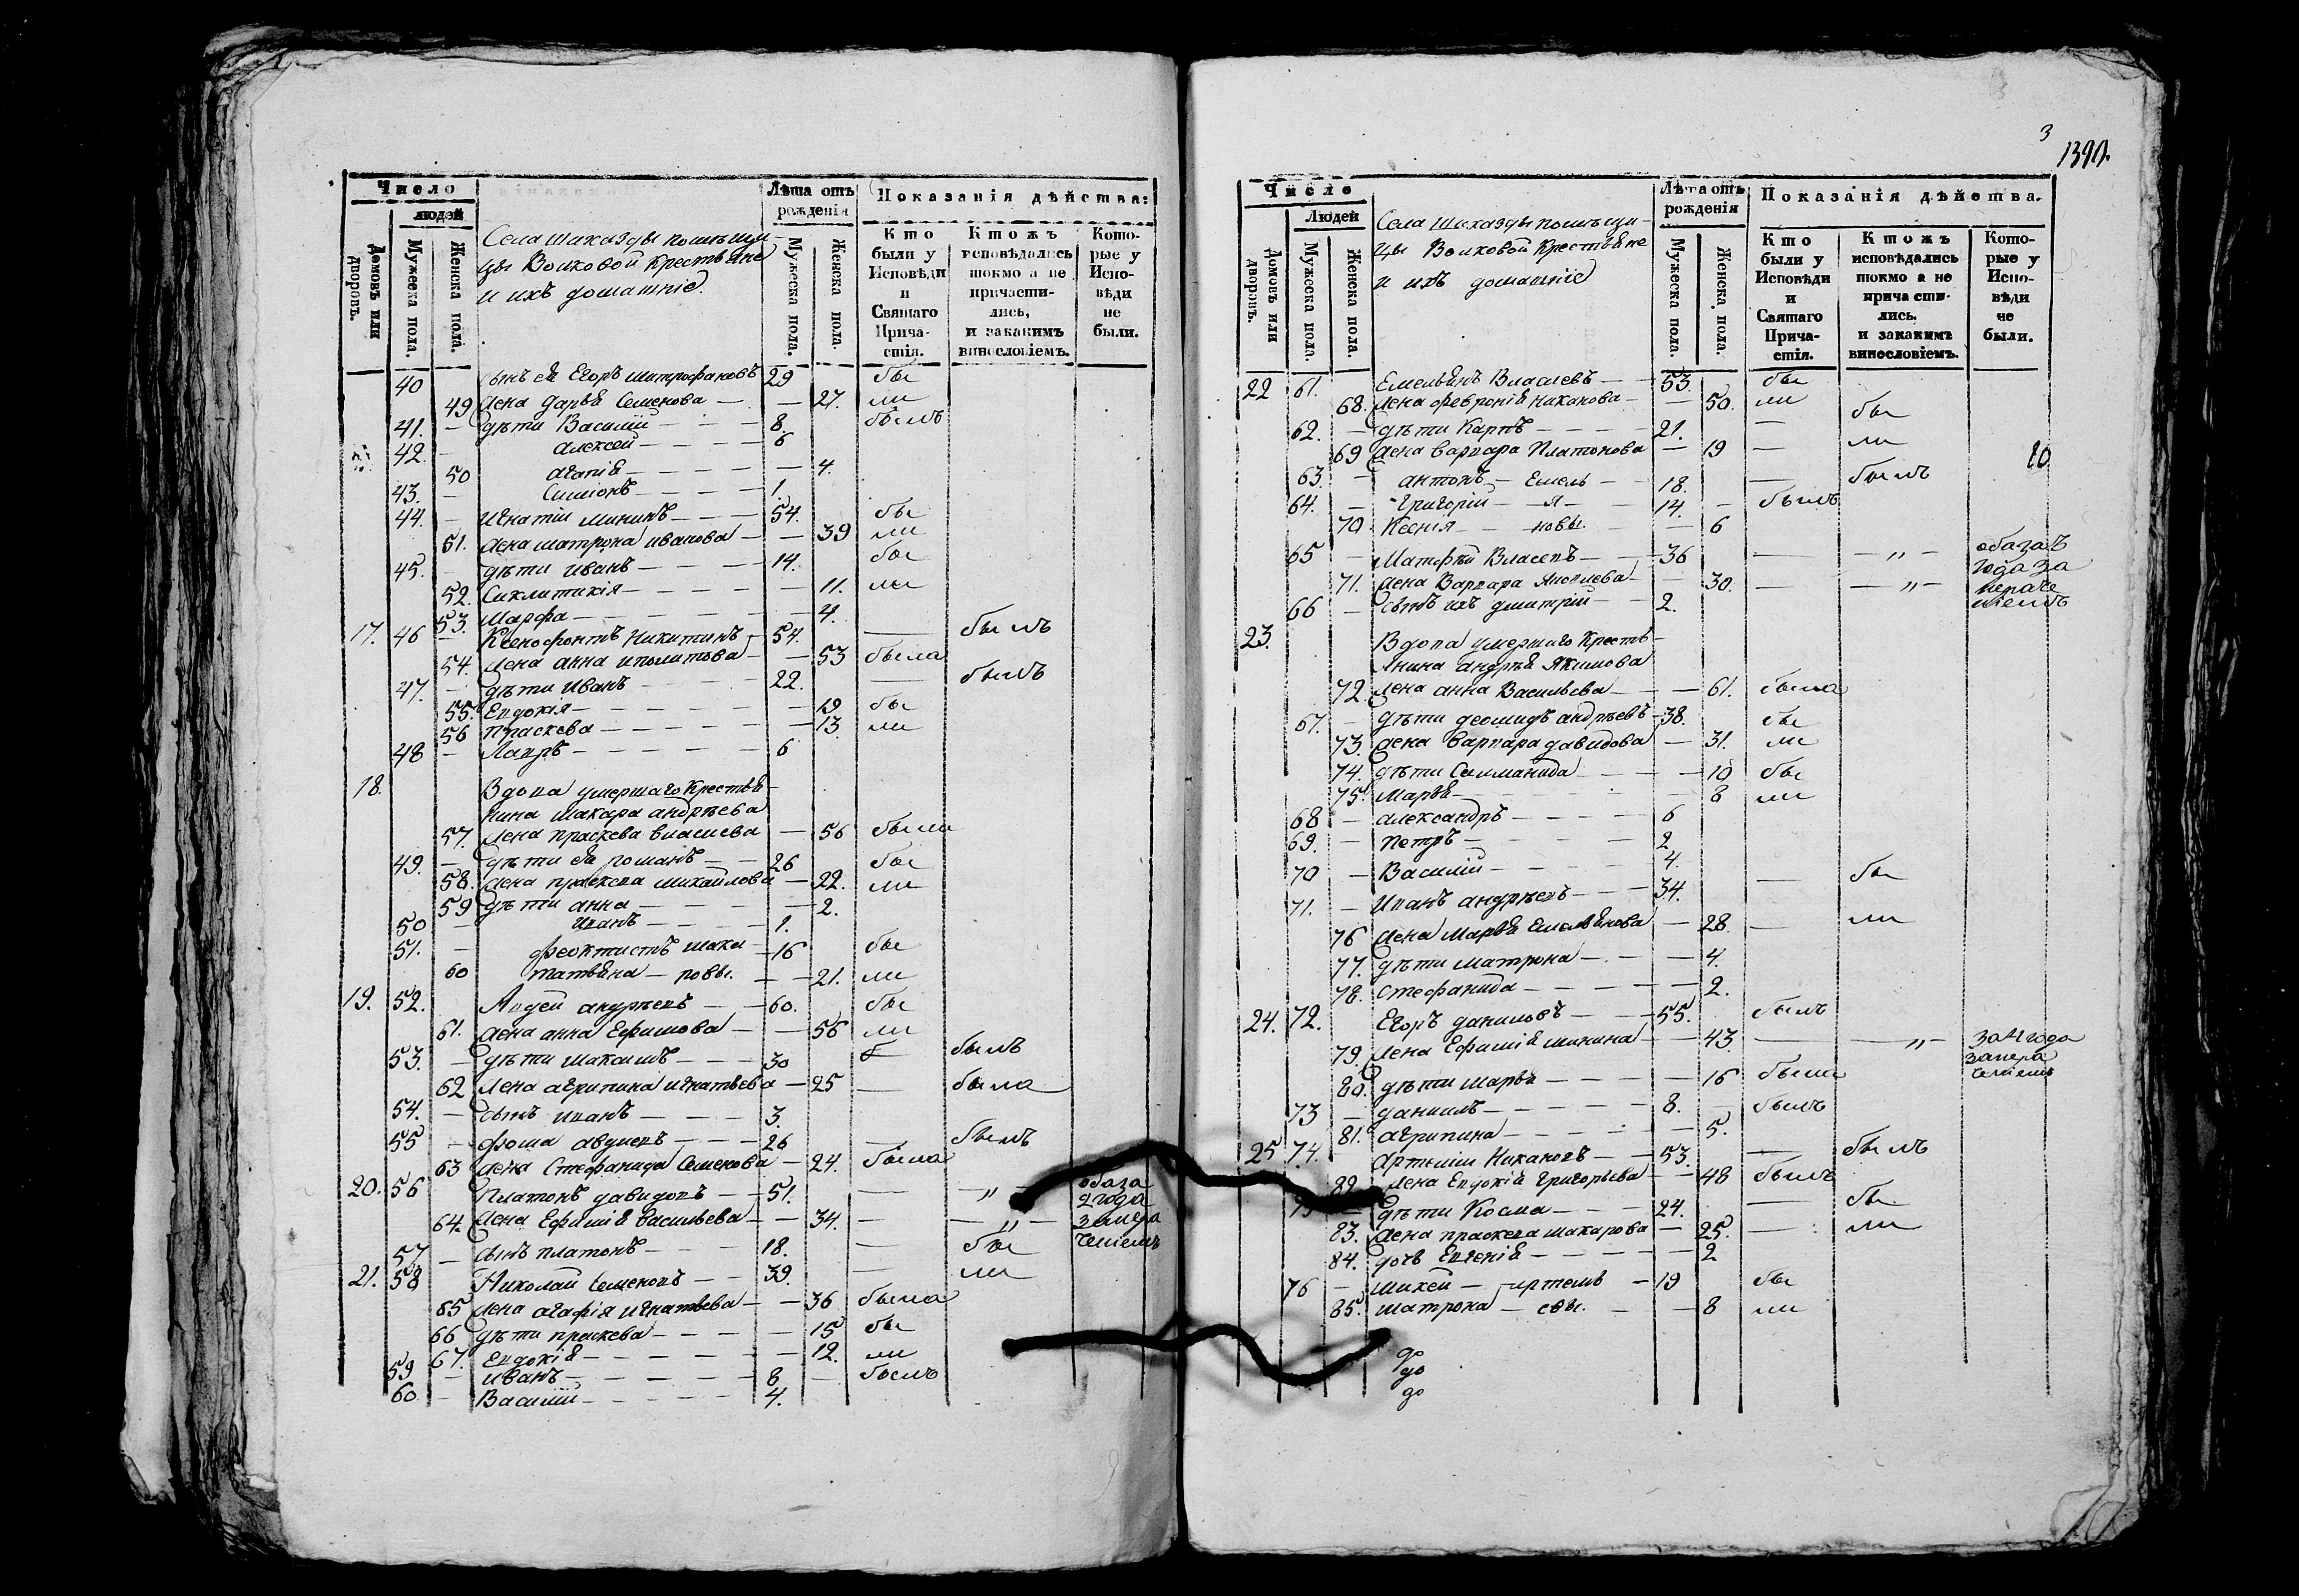 Число
людей
Домовъ или дворовъ.
Мужеска пола.
Женска пола.
Села Шахазды помѣщи-
цы Волховой Крестьяне
и ихъ домашніе.
Лѣта отъ рожденія
Мужеска пола.
Женска пола.
Показанія дѣйства:
Кто были у Исповѣди и Святаго Прича-стія.
Ктожъ исповѣдались токмо а не причасти-лись, и закакимъ винословіемъ.
Кото-рые у Испо-вѣди не были.
40 сынъ ея Егоръ Митрофановъ 29 бы
49 Жена Дарья Семенова — — 27. ли
41. — дѣти Василій — — 8. былъ
42. — Алексей — — 6
50 Агапія — — 4.
43. — Симіонъ — — 1.
44. — Игнатій Мининъ — — 54. бы
51. Жена Матрона Иванова — — 39 ли
45. — дѣти Иванъ — — 14. бы
52. Сиклитикія — — 11. ли
53. Марфа — — 4.
17. 46 — Ксенофонтъ Никитинъ — 54. — былъ
54. Жена Анна Иполитова — — 53 была
47. — дѣти Иванъ — 22. — былъ
55. Евдокія — — 19 бы
56 Праскева — — 13. ли
48 — Лавръ — — 6
18. Вдова умершаго Крестья-
нина Макара Андрѣева
57. Жена Праскева Власиева — 56 была
49. — дѣти ея Романъ — — 26 бы
58. Жена Праскева Михайлова — 22. ли
59 дѣти Анна — — 2.
50 — Иванъ — — 1.
51. — Феоктистъ Мака — 16 бы
60 Татьяна — ровы. — — 21. ли
19. 52. Авдей Андрѣевъ — — 60. бы
61. Жена Анна Ефимова — — 56 ли
53. — дѣти Максимъ — — 30 былъ
62 Жена Агрипина Игнатьева — 25 — была
54. — сынъ Иванъ — — 3.
55 — Фома Авдиевъ — — 26 — былъ
63 Жена Стефанида Семенова — 24. была
20. 56 Платонъ Давидовъ — — 51. — — „ — обаза
2 года
64. Жена Ефимія Васильева — — 34. — — „ — занера
ченіемъ
57 — сынъ Платонъ — — 18. — бы
21. 58 Николай Семеновъ — — 39. — ли
65 Жена Агафія Игнатьева — — 36 была
66 дѣти Праскева — — 15 бы
67. Евдокія — — 12. ли
59 — Иванъ — — 8 — былъ
60. — Василій — — 4.
3
1390.
Число
Людей
Домовъ или дворовъ.
Мужеска пола.
Женска пола.
Села Шахазды помѣщи-
цы Волховой Крестьяне
и ихъ домашніе
Лѣта отъ рожденія
Мужеска пола.
Женска пола.
Показанія дѣйства.
Кто были у Исповѣди и Святаго Прича-стія.
Ктожъ исповѣдались токмо а не прича сти-лись. и закакимъ винословіемъ.
Кото-рые у Испо-вѣди не были.
22 61. Емельянъ Власиевъ — — 53. бы
68. Жена Феvронія Никонова — — 50. ли
62. — дѣти Карпъ — — 21. — бы
69 Жена Варвара Платонова — 19 — ли
10
63. — Антонъ — Емель — 18. — былъ
64. — Григорій — я — 14. — былъ
70 Ксенія — новы. — 6
65 — Матфѣй Власевъ — — 36 — — „ — обазаъ
года за
71. Жена Варвара — — 30. — — „ — нераче
ніемъ
66 — сынъ ихъ Дмитрій — — 2.
23. Вдова умершаго Кресть-
янина Андрѣя Якимова
72 Жена Анна Васильева — — 61. была
67. — дѣти Деомидъ Андрѣевъ — 38. бы
73. Жена Варвара Давидова — 31. ли
74. дѣти Саламанида — — 10 бы
75. Марья — 8 ли
68 — Александръ — — 6
69. — Петръ — — 2
70 — Василій — — 4.
71. — Иванъ Андрѣевъ — — 34. — бы
76 Жена Марья Емельянова — 28. — ли
77. дѣти Матрона — — 4.
78. Стефанида — — 2.
24. 72. Егоръ Даниловъ — — 55. былъ
79. Жена Ефимія Минина — — 43. — — „ — за 4 года
занера
ченіемъ
80. дѣти Марья — — 16 была
73 — Даниилъ — — 8. — былъ
81. Агрипина — — 5.
25 74. Артемій Никоновъ — — 53. — былъ
82. Жена Евдокія Григорьева — — 48 былъ
75 — дѣти Косма — — 24. — бы
83. Жена Праскева Макарова — 25. — ли
84. дочь Евгенія — — 2
76 — Михей — Артемь — 19 бы
85. Матрона — евы. — 8 ли
до
до
до